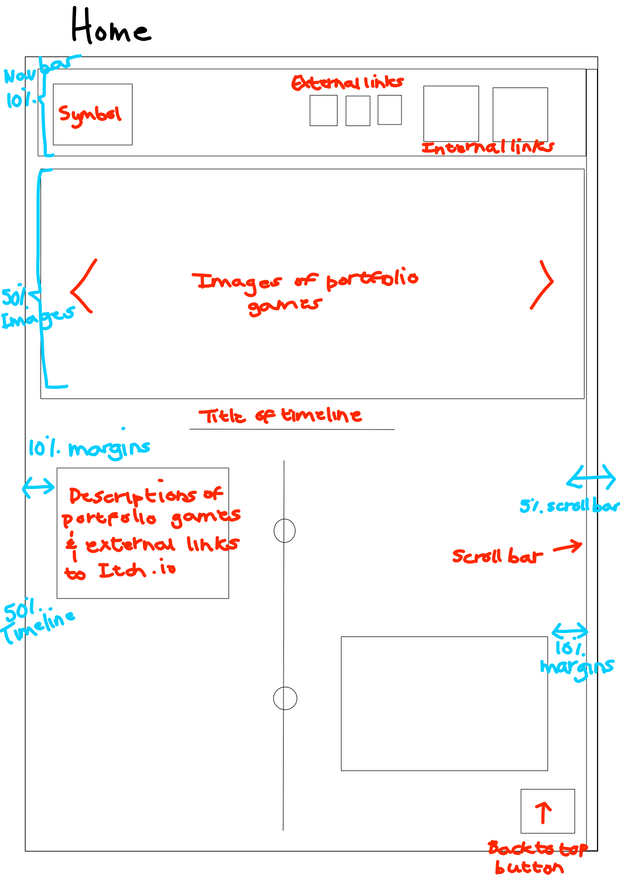 Home
Nav bar
10%.
Symbol
External links
Internal links
50%.
Images
Images of portfolio
games
Title of timeline
10%. margins
Descriptions of
portfolio games
& external links
to Itch.io
5%. scroll bar
Scroll bar
50%.
Timeline
10%.
margins
Back to top
button